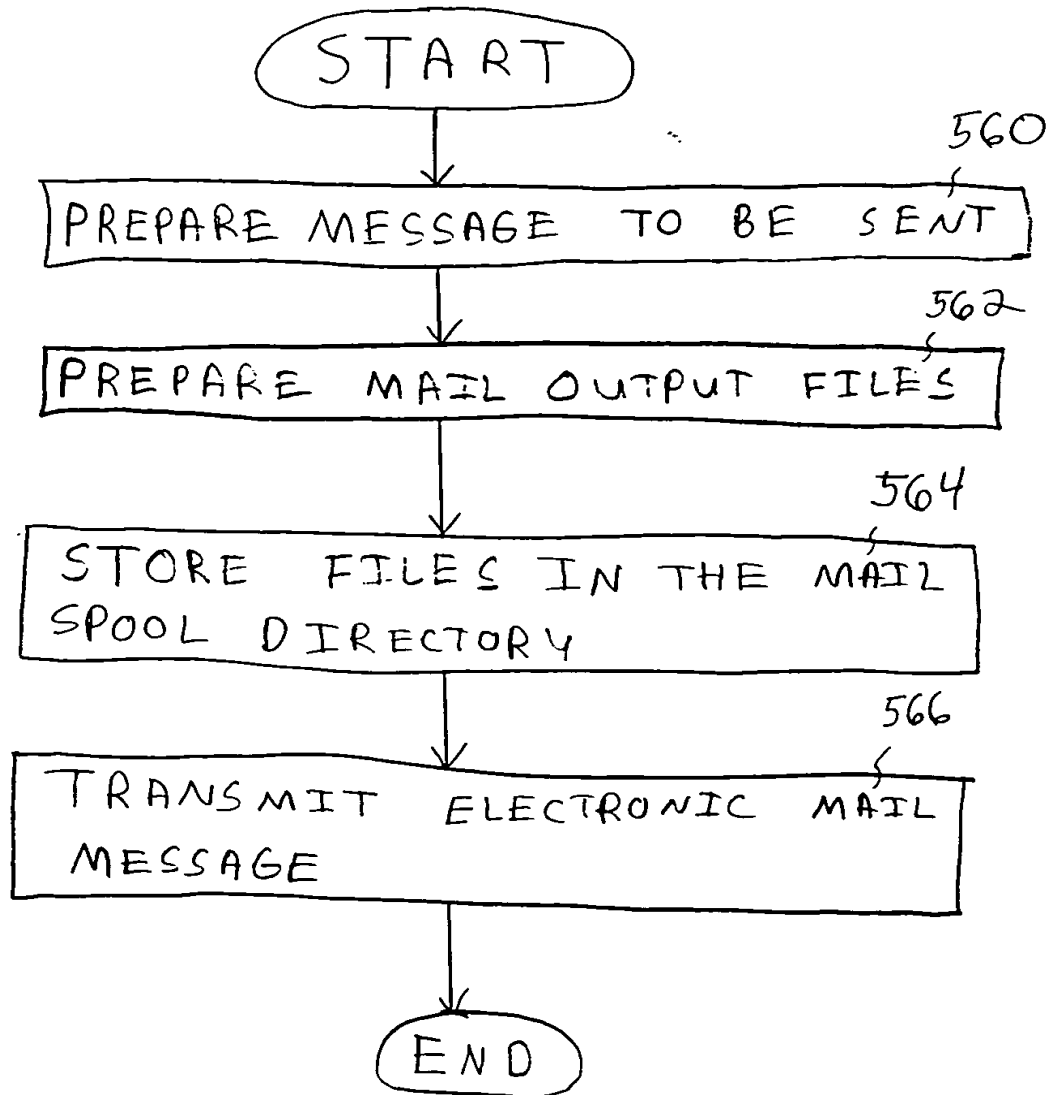 START
560
PREPARE MESSAGE TO BE SENT
562
PREPARE MAIL OUTPUT FILES
564
STORE FILES IN THE MAIL
SPOOL DIRECTORY
566
TRANSMIT ELECTRONIC MAIL
MESSAGE
END